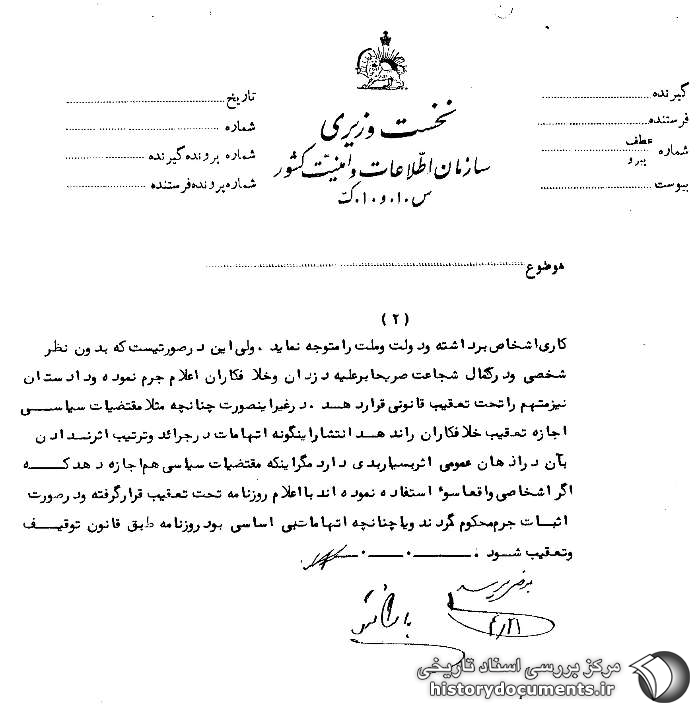 نخست وزیری
سازمان اطلاعات و امنیت کشور
س.ا.و.ا.ک
گیرنده
فرستنده
شماره عطف پیرو
پیوست
تاریخ
شماره
شماره پرونده گیرنده
شماره پرونده فرستنده
موضوع
(۲)
کاری اشخاص برداشته ودولت وملت را متوجه نماید . ولی این در صورتیست که بدون نظر
شخصی ودرکمال شجاعت صریحا برعلیه دزدان وخلافکاران اعلام جرم نموده ودادستان
نیزمتهم را تحت تعقیب قانونی قراردهد . درغیراینصورت چنانچه مثلا مقتضیات سیاسی
اجازه تعقیب خلافکاران راندهد انتشار اینگونه اتهامات درجرائد وترتیب اثرندادن
بآن دراذهان عمومی اثربسیاربدی دارد مگراینکه مقتضیات سیاسی هم اجازه دهد که
اگر اشخاصی واقعا سوء استفاده نموده اند با اعلام روزنامه تحت تعقیب قرارگرفته ودرصورت
اثبات جرم محکوم گردند ویا چنانچه اتهامات بی اساسی بود روزنامه طبق قانون توقیف
وتعقیب شود .
بعرض برسد
۴/۲۱
مرکز بررسی اسناد تاریخی
historydocuments.ir